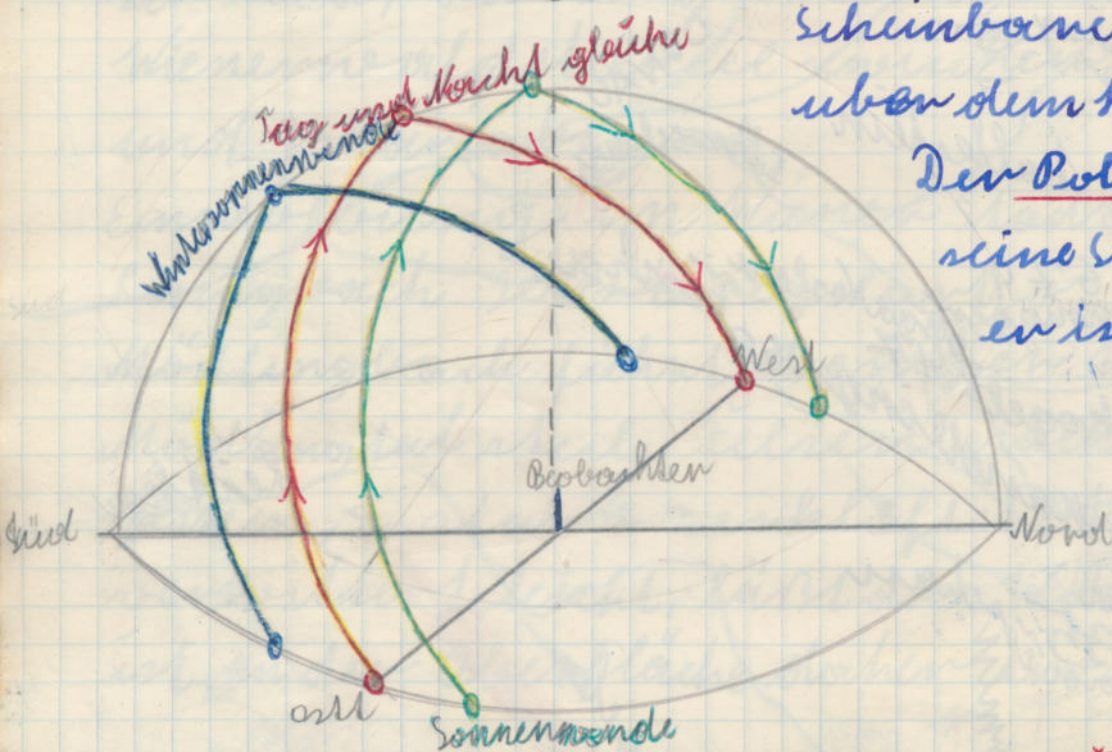 Scheinbare
über dem
Der Pol
seine S
er is
Tag und Nacht gleiche
Wintersonnenwende
West
Beobachter
Süd
Nord
ostl
Sonnenwende